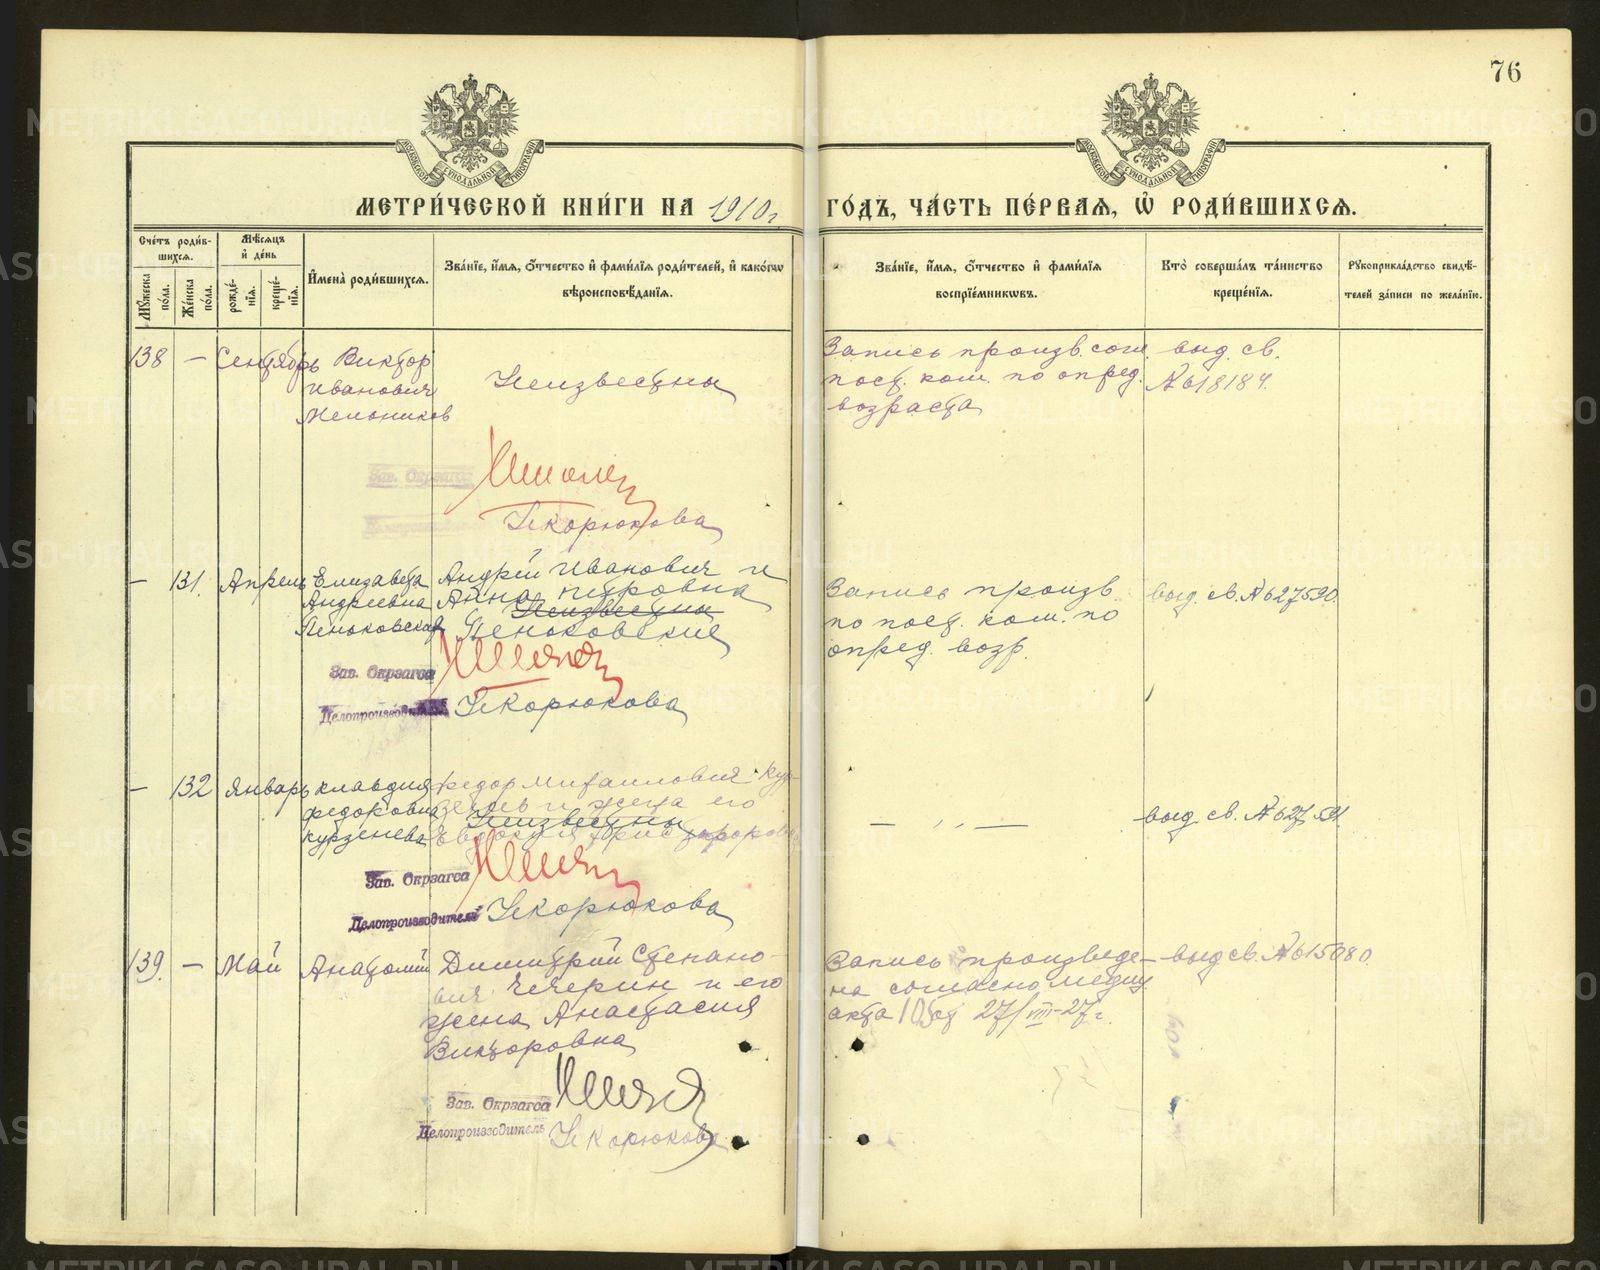 76
МОСКОВСКОЙ СѴНОДАЛЬНОЙ ТИПОГРАФІИ
МОСКОВСКОЙ СѴНОДАЛЬНОЙ ТИПОГРАФІИ
МЕТРИ́ЧЕСКОЙ КНИ́ГИ НА 1910 г.
ГО́ДЪ, ЧА́СТЬ ПЕ́РВАѦ, Ѡ҆ РОДИ́ВШИХСѦ.
Сче́тъ роди́в-
шихсѧ.
Мꙋ́жеска по́ла.
Же́нска по́ла.
Мѣ́сѧцъ
и҆ де́нь
рожде́-
нїѧ.
креще́-
нїѧ.
И҆мена̀ роди́вшихсѧ.
Зва́нїе, и҆́мѧ, ѻ҆́тчество и҆ фами́лїѧ роди́телей, и҆ како́гѡ
вѣроисповѣ́данїѧ.
Зва́нїе, и҆́мѧ, ѻ҆́тчество и҆ фами́лїѧ
воспрїе́мникѡвъ.
Кто̀ соверша́лъ та́инство
креще́нїѧ.
Рꙋкоприкла́дство свидѣ́-
телей за́писи по жела́нїю.
138 — Сентябрь Виктор
Иванович
Мельников
Неизвестны
Запись произв. согл.
пост. ком. по опред.
возраста
выд. св.
№ 618184.
Зав. Окрзагса
Делопроизводитель
Некорюкова
— 131. Апрель Елизавета
Андреевна
Пеньковская
Андрей Иванович и
Анна Петровна
Неизвестны
Пеньковские
Запись произв.
по пост. ком. по
опред. возр.
выд. св. № 627590.
Зав. Окрзагса
Делопроизводитель
Некорюкова
— 132 Январь Клавдия
Федоровна
Курзенева
Федор Михайлович Кур-
и жена его
Неизвестны
— „ —
выд св. № 627591.
Зав. Окрзагса
Делопроизводитель Некорюкова
139. — Май Анатолий
Димитрий Степано-
вич Чечерин и его
жена Анастасия
Викторовна
Запись произведе-
на согласно медиц
акта 105 от 27/VIII-27 г.
выд св. № 615080.
Зав. Окрзагса
Делопроизводитель Некорюкова
METRIKI.GASO-URAL.RU